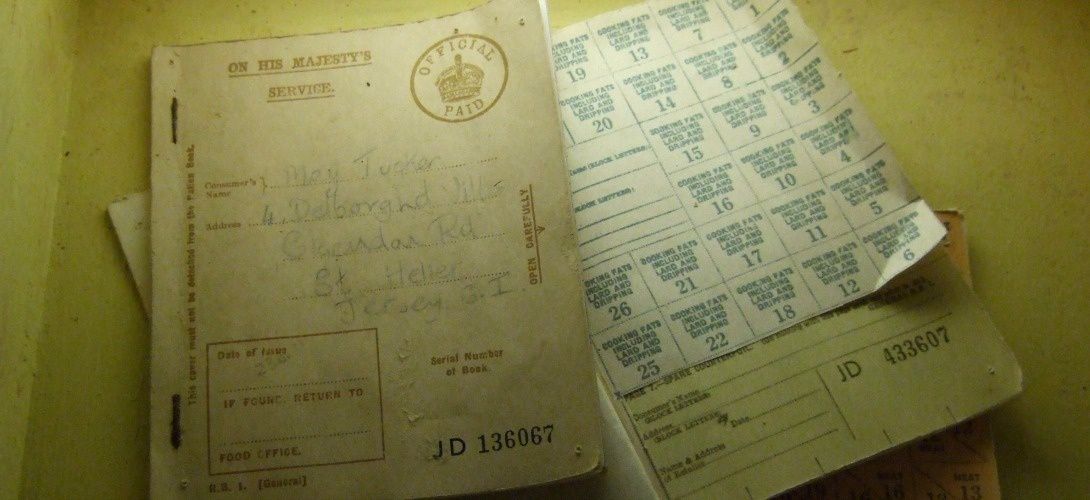 ON HIS MAJESTY'S
SERVICE.
OFFICIAL
PAID
This cover must not be detached from the Ration Book.
Consumer's
Name
May Tucker
Address
4.
Rd
St. Helier
Jersey C.I
OPEN CAREFULLY
Date of Issue
IF FOUND, RETURN TO
FOOD OFFICE.
Serial Number
of Book.
JD 136067
R.B. 1. [General]
COOKING FATS
INCLUDING
LARD AND
DRIPPING
1
COOKING FATS
INCLUDING
LARD AND
DRIPPING
2
COOKING FATS
INCLUDING
LARD AND
DRIPPING
3
COOKING FATS
INCLUDING
LARD AND
DRIPPING
4
COOKING FATS
INCLUDING
LARD AND
DRIPPING
5
6
COOKING FATS
INCLUDING
LARD AND
DRIPPING
7
COOKING FATS
INCLUDING
LARD AND
DRIPPING
8
COOKING FATS
INCLUDING
LARD AND
DRIPPING
9
COOKING FATS
INCLUDING
LARD AND
DRIPPING
10
COOKING FATS
INCLUDING
LARD AND
DRIPPING
11
COOKING FATS
INCLUDING
LARD AND
DRIPPING
12
COOKING FATS
INCLUDING
LARD AND
DRIPPING
13
COOKING FATS
INCLUDING
LARD AND
DRIPPING
14
COOKING FATS
INCLUDING
LARD AND
DRIPPING
15
COOKING FATS
INCLUDING
LARD AND
DRIPPING
16
COOKING FATS
INCLUDING
LARD AND
DRIPPING
17
COOKING FATS
INCLUDING
LARD AND
DRIPPING
18
19
COOKING FATS
INCLUDING
LARD AND
DRIPPING
20
(BLOCK LETTERS)
COOKING FATS
INCLUDING
LARD AND
DRIPPING
21
COOKING FATS
INCLUDING
LARD AND
DRIPPING
22
COOKING FATS
INCLUDING
LARD AND
DRIPPING
26
COOKING FATS
INCLUDING
LARD AND
DRIPPING
25
PAGE 7.—SPARE
Consumer's Name
(BLOCK LETTERS)
Address
(BLOCK LETTERS)
Date
Name & Address
of Retailer
JD 433607
MEAT
MEAT
13